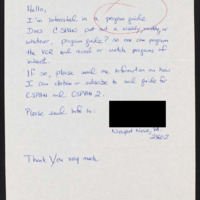 Hello,
I'm interested in a program guide.
Does CSPAN put out a weekly, monthly, or
whatever, program guide? so one can program
the VCR and record or watch programs of
interest.
If so, please send me information on how
I can obtain or subscribe to said guide for
CSPAN and CSPAN 2.
Please send info to:
Newport News, VA.
Thank you very much.